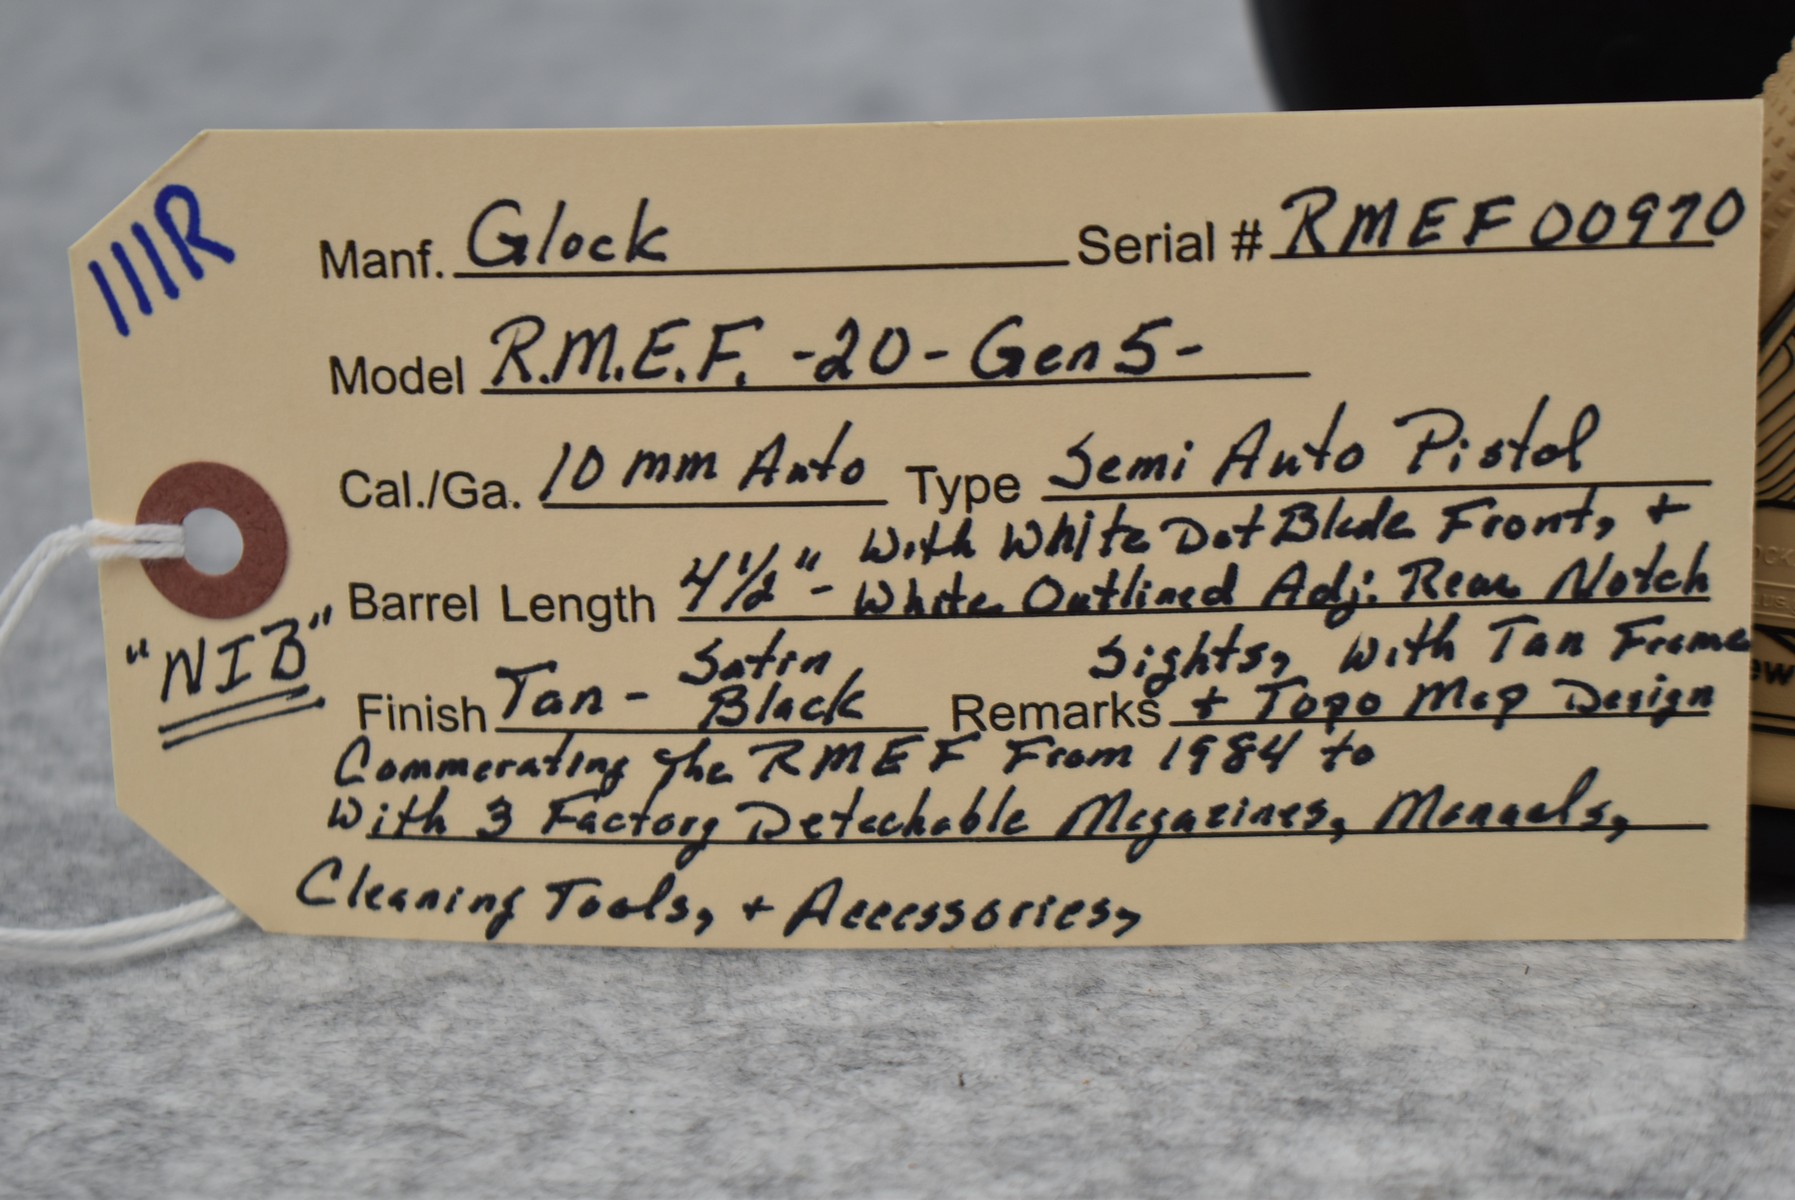 111R
Manf. Glock Serial # RMEF00970
Model R.M.E.F. -20- Gen5-
Cal./Ga. 10mm Auto Type Semi Auto Pistol
With White Dot Blade Front, +
Barrel Length 4½" - White Outlined Adj. Rear Notch
"NIB"
Satin Sights, With Tan Frame
Finish Tan - Black Remarks + Topo Map Design
Commerating The RMEF From 1984 to
With 3 Factory Detachable Magazines, Manuals,
Cleaning Tools, + Accessories,